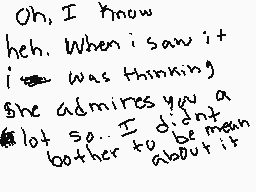 Oh, I know
heh. When i saw it
i was thinking
she admires you a
lot so.. I didnt
bother to be mean
about it